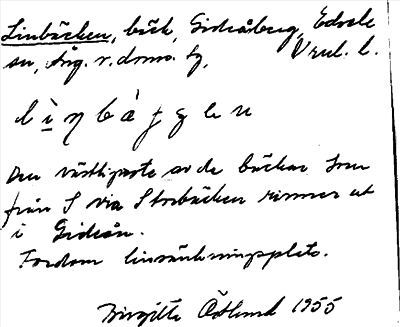 Linbäcken, bäck, Gideåberg, Edsele
sn, Ång. v. doms. tg,
lìŋbàʃʃen
Den västligaste av de bäckar som
från S via Storbäcken rinner ut
i Gideån.
Fordom linsänkningsplats.
Birgitta Östlund 1955